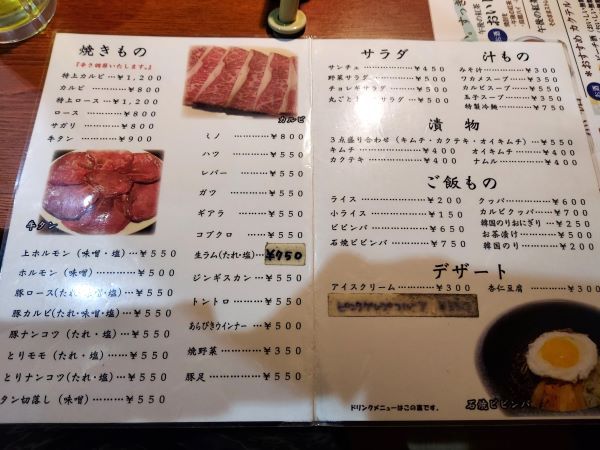 焼きもの
『辛さ調節いたします。』
特上カルビ ‥‥ ￥1,200
カルビ ‥‥‥‥ ￥800
特上ロース ‥‥ ￥1,200
ロース ‥‥‥‥ ￥800
サガリ ‥‥‥‥ ￥800
牛タン ‥‥‥‥ ￥900
牛タン
上ホルモン (味噌・塩) … ￥550
ホルモン (味噌・塩) …… ￥500
豚ロース(たれ・味噌・塩) … ￥550
豚カルビ(たれ・味噌・塩) … ￥550
豚ナンコツ (たれ・塩) … ￥550
とりモモ (たれ・塩) …… ￥550
とりナンコウ(たれ・塩) … ￥550
タン切落し (味噌) ……… ￥550
カルビ
ミノ ………… ￥800
ハツ ………… ￥550
レバー ……… ￥550
ガツ ………… ￥550
ギアラ ……… ￥550
コブクロ …… ￥550
生ラム(たれ・塩) … ￥750
ジンギスカン … ￥550
トントロ …… ￥550
あらびきウインナー … ￥500
焼野菜 ……… ￥350
豚足 ………… ￥550
サラダ
サンチェ ………… ￥450
野菜サラダ ……… ￥500
チョレギサラダ … ￥500
サラダ … ￥400
汁もの
みそ汁 ………… ￥300
ワカメスープ … ￥350
カルビスープ … ￥550
玉子スープ …… ￥350
特製冷麺 ……… ￥750
漬物
3点盛り合わせ (キムチ・カクテキ・オイキムチ) … ￥550
キムチ ………… ￥400
オイキムチ …… ￥400
カクテキ ……… ￥400
ナムル ………… ￥400
ご飯もの
ライス ………… ￥200
小ライス ……… ￥150
ビビンバ ……… ￥650
石焼ビビンバ … ￥750
クッパ ………… ￥600
カルビクッパ … ￥700
韓国のりおにぎり … ￥250
お茶漬け ……… ￥500
韓国のり ……… ￥200
デザート
アイスクリーム … ￥300
杏仁豆腐 ……… ￥300
石焼ビビンバ
ドリンクメニューはこの裏です。